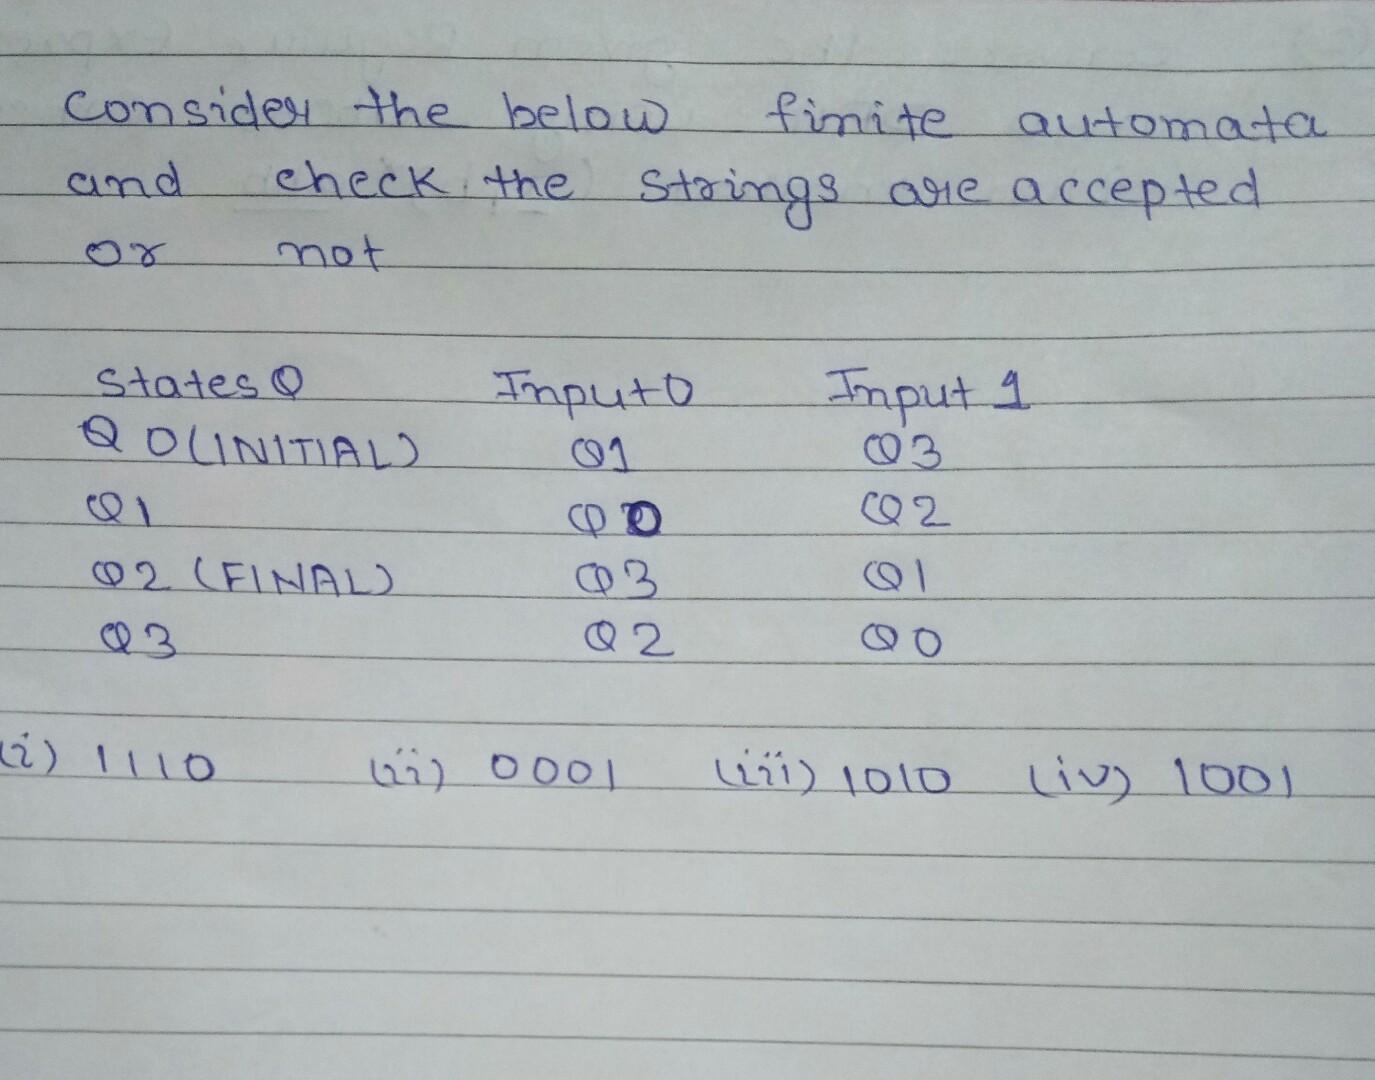 Consider the below finite automata
and check the strings are accepted
or not
States Q Input 0 Input 1
Q0(INITIAL) Q1 Q3
Q1 Q0 Q2
Q2 (FINAL) Q3 Q1
Q3 Q2 Q0
(i) 1110 (ii) 0001 (iii) 1010 (iv) 1001